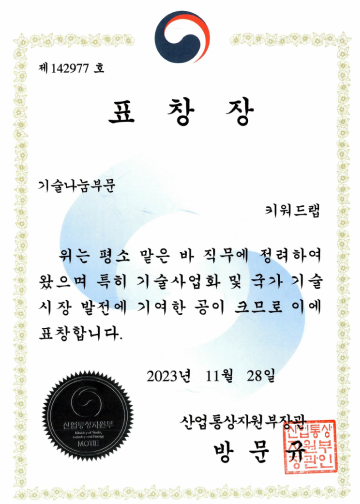 제 142977 호
표 창 장
기술나눔부문
키워드랩
위는 평소 맡은 바 직무에 정려하여
왔으며 특히 기술사업화 및 국가 기술
시장 발전에 기여한 공이 크므로 이에
표창합니다.
2023년 11월 28일
산업통상자원부장관
방 문 규
산업통상
자원부
장관인
산업통상자원부
Ministry of Trade,
Industry and Energy
MOTIE